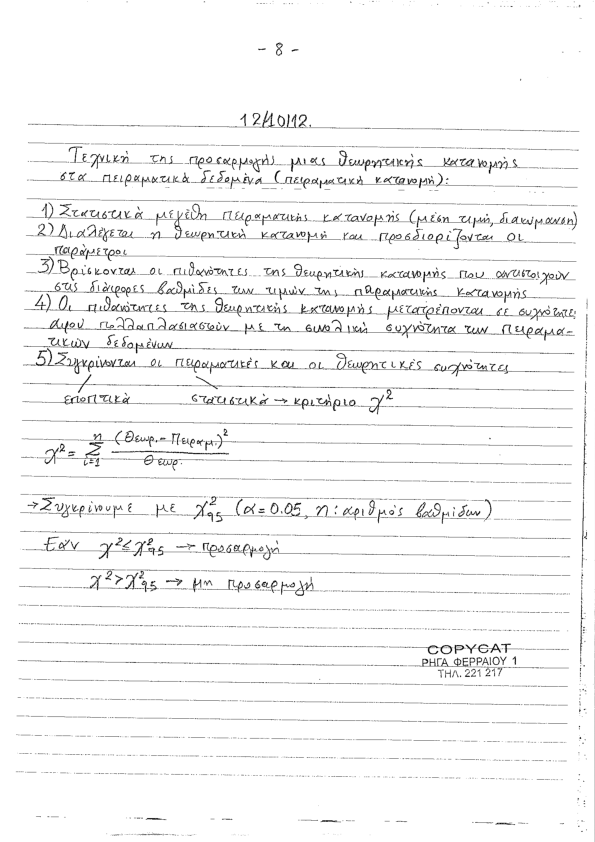 - 8 -
12/10/12.
Τεχνική της προσαρμογής μιας θεωρητικής κατανομής
στα πειραματικά δεδομένα (πειραματική κατανομή):
1) Στατιστικά μεγέθη πειραματικής κατανομής (μέση τιμή, διακύμανση)
2) Διαλέγεται η θεωρητική κατανομή και προσδιορίζονται οι
παράμετροι
3) Βρίσκονται οι πιθανότητες της θεωρητικής κατανομής που αντιστοιχούν
στις διάφορες βαθμίδες των τιμών της παραματικής κατανομής
4) Οι πιθανότητες της θεωρητικής κατανομής μετατρέπονται σε συχνότητες
αφού πολλαπλασιαστούν με τη συνολική συχνότητα των πειραμα-
τικών δεδομένων
5) Συγκρίνονται οι πειραματικές και οι θεωρητικές συχνότητες
εποπτικά στατιστικά → κριτήριο χ²
χ² = Σ_{i=1}^{n} (Θεωρ. - Πειραμ.)² / Θεωρ.
→ Συγκρίνουμε με χ²₉₅ (α = 0.05, n: αριθμός βαθμίδων)
Εάν χ² ≤ χ²₉₅ → προσαρμογή
χ² > χ²₉₅ → μη προσαρμογή
COPYCAT
ΡΗΓΑ ΦΕΡΡΑΙΟΥ 1
ΤΗΛ. 221 217